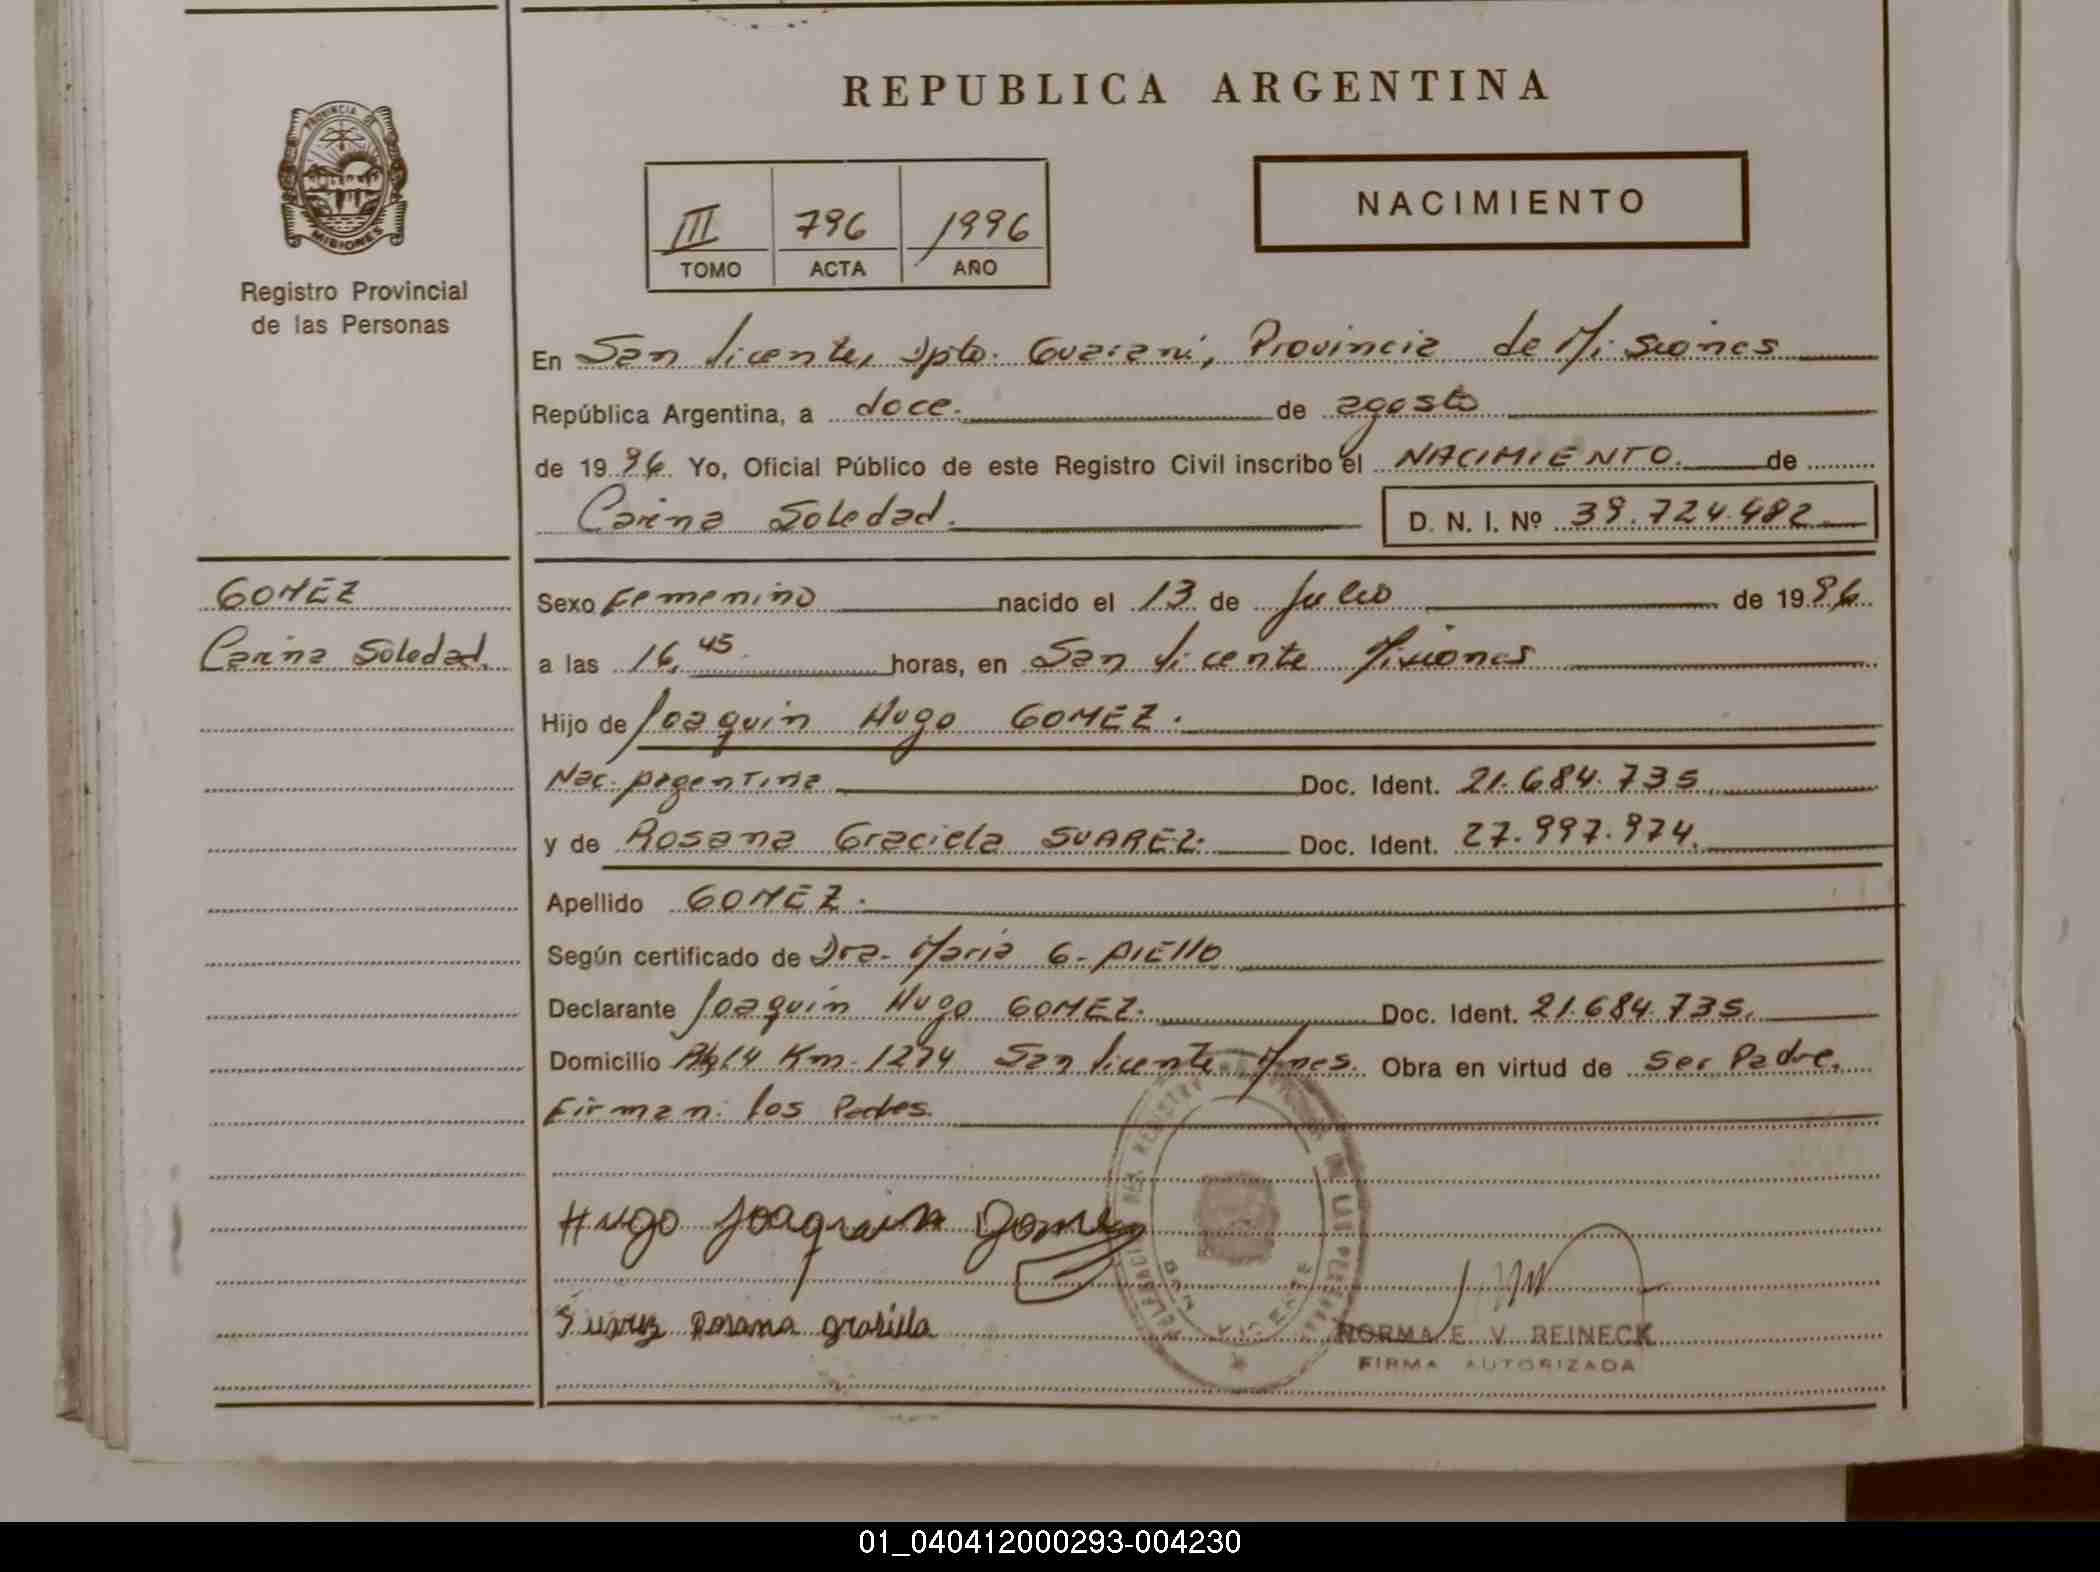 REPUBLICA ARGENTINA
PROVINCIA DE
MISIONES
Registro Provincial
de las Personas
III 796 1996
TOMO ACTA AÑO
NACIMIENTO
En San Vicente, Dpto. Guarani, Provincia de Misiones
República Argentina, a doce. de agosto
de 1996. Yo, Oficial Público de este Registro Civil inscribo el NACIMIENTO. de
Carina Soledad. D. N. I. Nº 39.724.482
GOMEZ
Carina Soledad.
Sexo Femenino nacido el 13 de Julio de 1996.
a las 16,45 horas, en San Vicente Misiones
Hijo de Joaquin Hugo GOMEZ.
Nac. Argentina Doc. Ident. 21.684.735
y de Rosana Graciela SUAREZ. Doc. Ident. 27.997.974.
Apellido GOMEZ.
Según certificado de Dra. Maria G. AIELLO
Declarante Joaquin Hugo GOMEZ. Doc. Ident. 21.684.735.
Domicilio 14 Km. 1274 San Vicente Mnes. Obra en virtud de ser Padre.
Firman: los Padres.
Hugo Joaquin Gomez
Suarez Rosana grasiela
NORMA E. V. REINECK
FIRMA AUTORIZADA
01_040412000293-004230